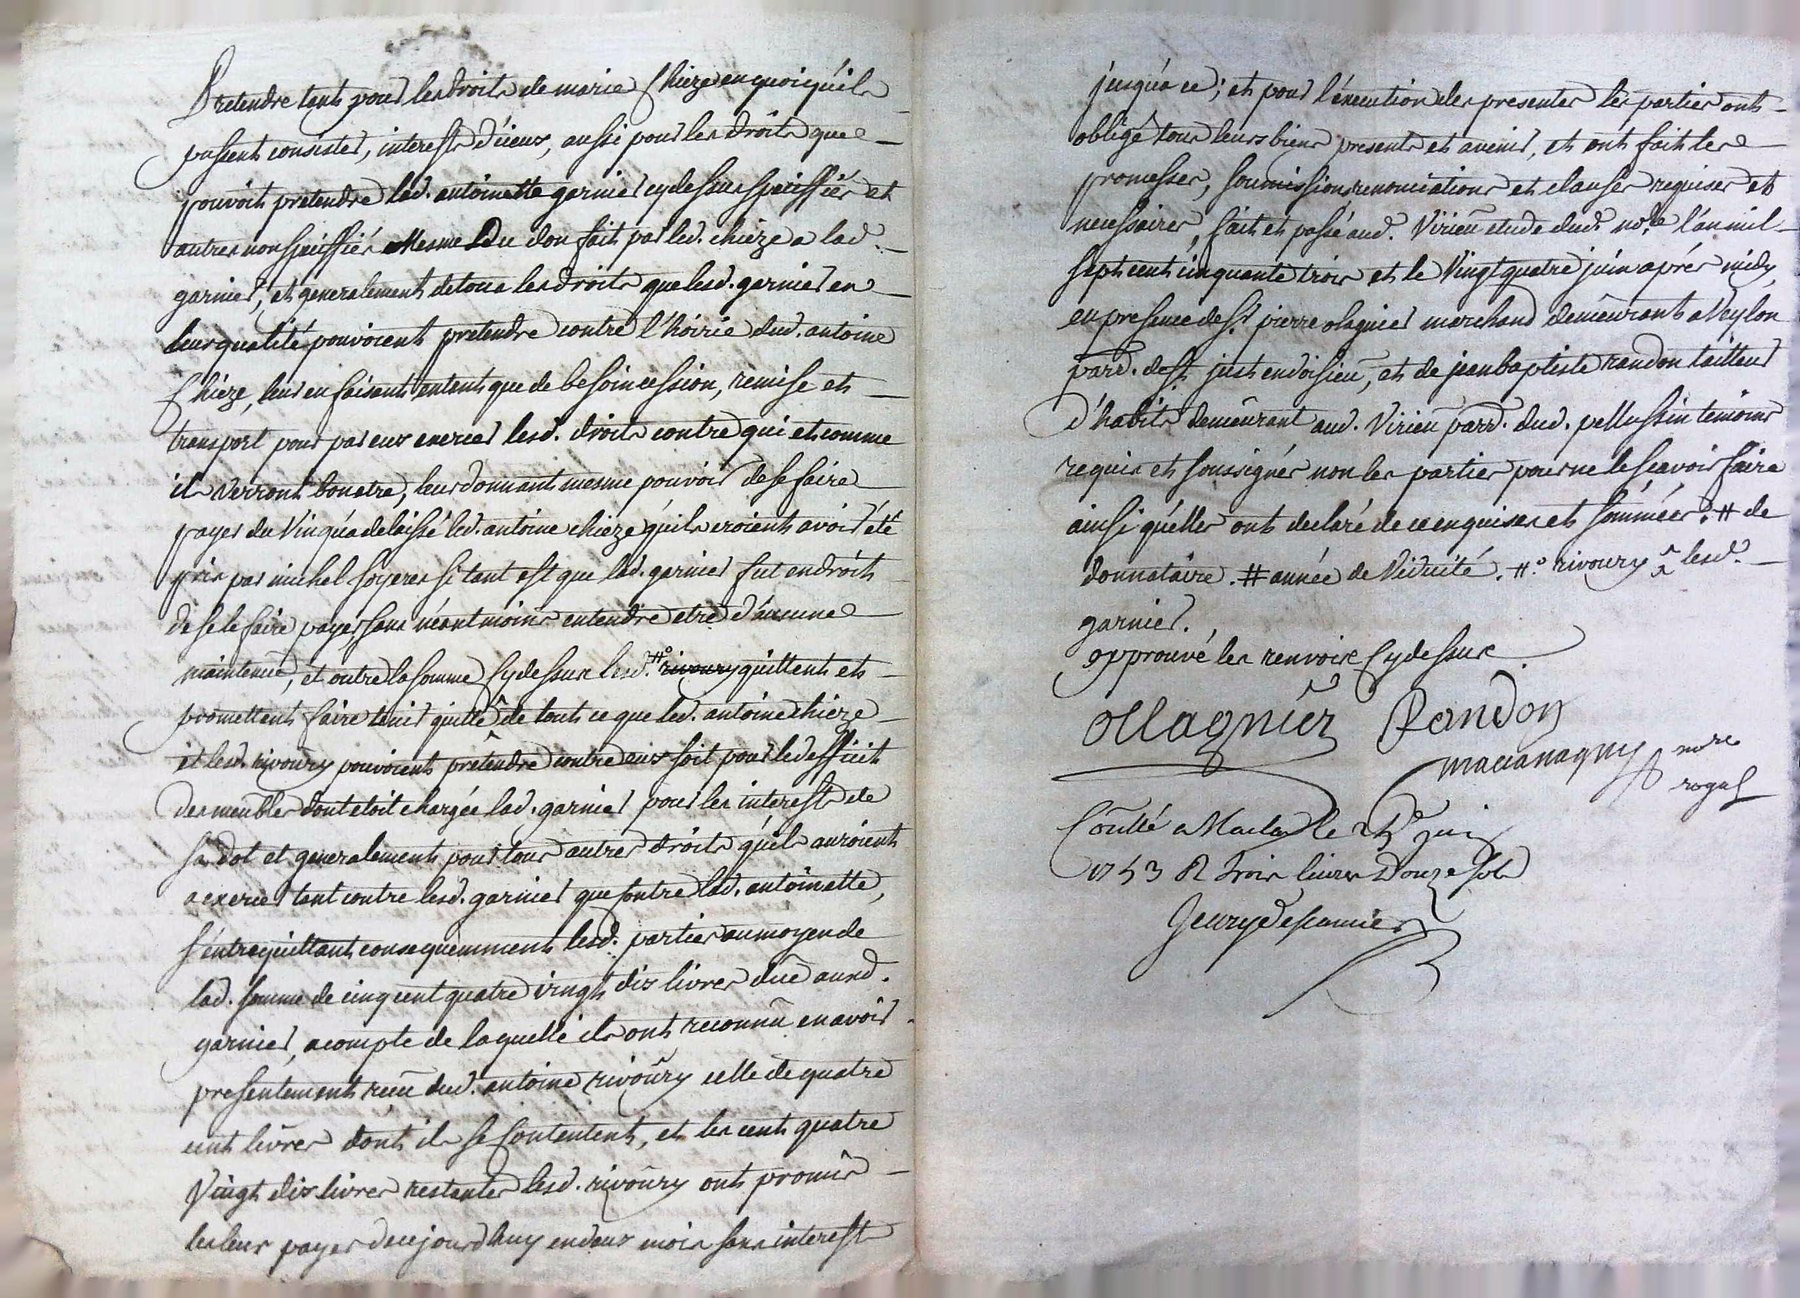 Pretendre tant pour les droits de marie chieze en quoi quils
puissent consister, interests d'iceux, aussi pour les droits que
pouvoit pretendre lad. antoinette garnier cydessus speciffiés et
autres non speciffiés Mesme Du don fait par led. chieze a lad.
garnier, et generalement de tous les droits que lesd. garnier en
leur qualité pouvoient pretendre contre l'hoirie dud. antoine
Chieze, leur en faisant entent que de besoin cession, remise et
transport pour par eux exercer lesd. droits contre qui et comme
ils verront bon etre, leur donnant mesme pouvoir de se faire
payer du vin qu'a delaissé led. antoine chieze qu'ils croient avoir été
pris par michel soyeres si tant est que lad. garnier fut en droit
de se le faire payer sans néantmoins entendre etre d'aucune
maintenue, et outre la somme Cydessus lesd. #° rivoury quittent et
promettent faire tenir quitte de tout ce que led. antoine chieze
et lesd. rivoury pouvoient pretendre contre eux soit pour le defficit
des meubles dont etoit chargée lad. garnier pour les interests de
sa dot et generalement pour tous autres droits qu'ils auroient
a exercer tant contre lesd. garnier que contre lad. antoinette,
s'entrequittant consequemment lesd. parties au moyen de
lad. somme de cinq cent quatre vingt dix livres düe auxd.
garnier, acompte de laquelle ils ont reconnu en avoir
presentement receu dud. antoine rivoury celle de quatre
cent livres dont ils se Contentent, et les cent quatre
Vingt dix livres restantes lesd. rivoury ont promis
les leur payer de ce jourd'huy en deux mois sans interest
jusqu'a ce; et pour l'execution des presentes les parties ont
obligé tous leurs biens presents et avenir, et ont fait les
promesses, soumissions renonciations et clauses requises et
necessaires, fait et passé aud. Virieu etude dud. no.re l'an mil
sept cent cinquante trois et le vingt quatre juin aprés midy
en presence de sr. pierre olagnier marchand demeurant a Veylon
parr. de st. just en doisieu, et de jean baptiste randon tailleur
d'habits demeurant aud. Virieu parr. dud. pellussin temoins
requis et soussignés non les parties pour ne le scavoir faire
ainsi qu'elles ont declaré de ce enquises et sommées. # de
donnataire. # année de Viduité. #° rivoury ^ lesd.
garnier.
approuvé les renvois Cydessus
Ollagnier Randon
mre
royal
Conllé a Maclas le 25e juin
1753 R Trois livres Douze sols